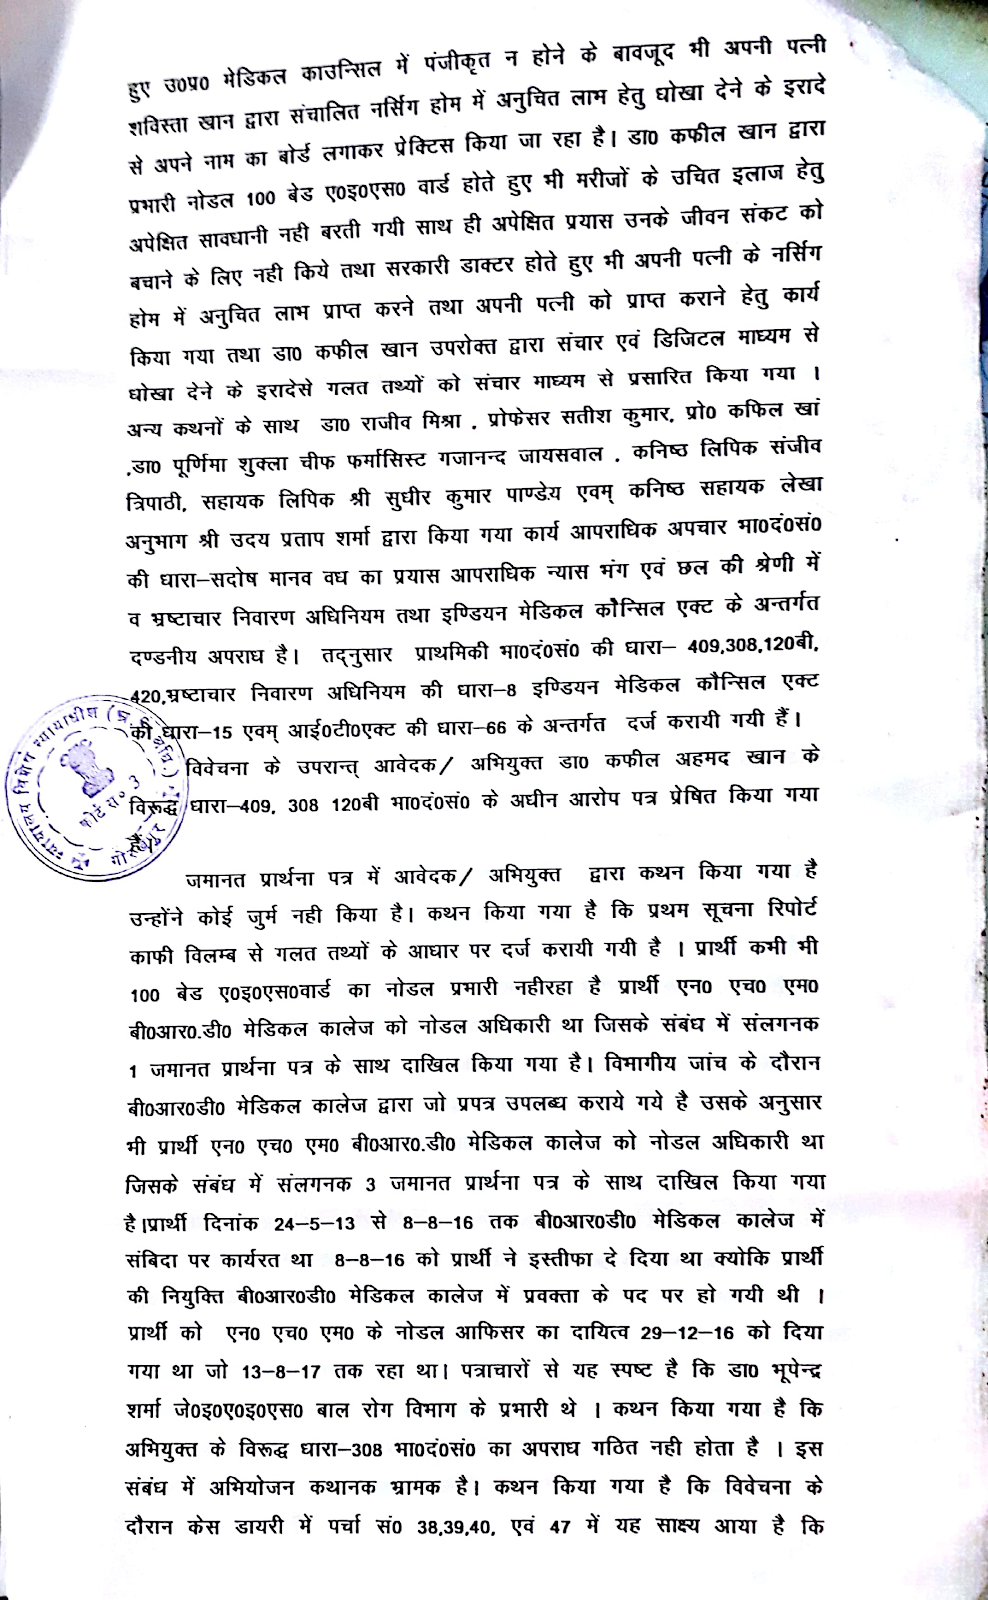 हुए उ0प्र0 मेडिकल काउन्सिल में पंजीकृत न होने के बावजूद भी अपनी पत्नी
शविस्ता खान द्वारा संचालित नर्सिग होम में अनुचित लाभ हेतु धोखा देने के इरादे
से अपने नाम का बोर्ड लगाकर प्रेक्टिस किया जा रहा है। डा0 कफील खान द्वारा
प्रभारी नोडल 100 बेड ए0इ0एस0 वार्ड होते हुए भी मरीजों के उचित इलाज हेतु
अपेक्षित सावधानी नही बरती गयी साथ ही अपेक्षित प्रयास उनके जीवन संकट को
बचाने के लिए नही किये तथा सरकारी डाक्टर होते हुए भी अपनी पत्नी के नर्सिग
होम में अनुचित लाभ प्राप्त करने तथा अपनी पत्नी को प्राप्त कराने हेतु कार्य
किया गया तथा डा0 कफील खान उपरोक्त द्वारा संचार एवं डिजिटल माध्यम से
धोखा देने के इरादेसे गलत तथ्यों को संचार माध्यम से प्रसारित किया गया ।
अन्य कथनों के साथ डा0 राजीव मिश्रा , प्रोफेसर सतीश कुमार, प्रो0 कफिल खां
,डा0 पूर्णिमा शुक्ला चीफ फर्मासिस्ट गजानन्द जायसवाल , कनिष्ठ लिपिक संजीव
त्रिपाठी, सहायक लिपिक श्री सुधीर कुमार पाण्डे़य एवम् कनिष्ठ सहायक लेखा
अनुभाग श्री उदय प्रताप शर्मा द्वारा किया गया कार्य आपराधिक अपचार भा0दं0सं0
की धारा–सदोष मानव वध का प्रयास आपराधिक न्यास भंग एवं छल की श्रेणी में
व भ्रष्टाचार निवारण अधिनियम तथा इण्डियन मेडिकल कौन्सिल एक्ट के अन्तर्गत
दण्डनीय अपराध है। तद्नुसार प्राथमिकी भा0दं0सं0 की धारा– 409,308,120बी,
420,भ्रष्टाचार निवारण अधिनियम की धारा–8 इण्डियन मेडिकल कौन्सिल एक्ट
की धारा–15 एवम् आई0टी0एक्ट की धारा–66 के अन्तर्गत दर्ज करायी गयी हैं।
विवेचना के उपरान्त् आवेदक/ अभियुक्त डा0 कफील अहमद खान के
विरूद्ध धारा–409, 308 120बी भा0दं0सं0 के अधीन आरोप पत्र प्रेषित किया गया
हैं।
कोर्ट सं० 3
गोरखपुर
जमानत प्रार्थना पत्र में आवेदक/ अभियुक्त द्वारा कथन किया गया है
उन्होंने कोई जुर्म नही किया है। कथन किया गया है कि प्रथम सूचना रिपोर्ट
काफी विलम्ब से गलत तथ्यों के आधार पर दर्ज करायी गयी है । प्रार्थी कभी भी
100 बेड ए0इ0एस0वार्ड का नोडल प्रभारी नहीरहा है प्रार्थी एन0 एच0 एम0
बी0आर0.डी0 मेडिकल कालेज को नोडल अधिकारी था जिसके संबंध में संलगनक
1 जमानत प्रार्थना पत्र के साथ दाखिल किया गया है। विभागीय जांच के दौरान
बी0आर0डी0 मेडिकल कालेज द्वारा जो प्रपत्र उपलब्ध कराये गये है उसके अनुसार
भी प्रार्थी एन0 एच0 एम0 बी0आर0.डी0 मेडिकल कालेज को नोडल अधिकारी था
जिसके संबंध में संलगनक 3 जमानत प्रार्थना पत्र के साथ दाखिल किया गया
है।प्रार्थी दिनांक 24–5–13 से 8–8–16 तक बी0आर0डी0 मेडिकल कालेज में
संबिदा पर कार्यरत था 8–8–16 को प्रार्थी ने इस्तीफा दे दिया था क्योकि प्रार्थी
की नियुक्ति बी0आर0डी0 मेडिकल कालेज में प्रवक्ता के पद पर हो गयी थी ।
प्रार्थी को एन0 एच0 एम0 के नोडल आफिसर का दायित्व 29–12–16 को दिया
गया था जो 13–8–17 तक रहा था। पत्राचारों से यह स्पष्ट है कि डा0 भूपेन्द्र
शर्मा जे0इ0ए0इ0एस0 बाल रोग विभाग के प्रभारी थे । कथन किया गया है कि
अभियुक्त के विरूद्ध धारा–308 भा0दं0सं0 का अपराध गठित नही होता है । इस
संबंध में अभियोजन कथानक भ्रामक है। कथन किया गया है कि विवेचना के
दौरान केस डायरी में पर्चा सं0 38,39,40, एवं 47 में यह साक्ष्य आया है कि